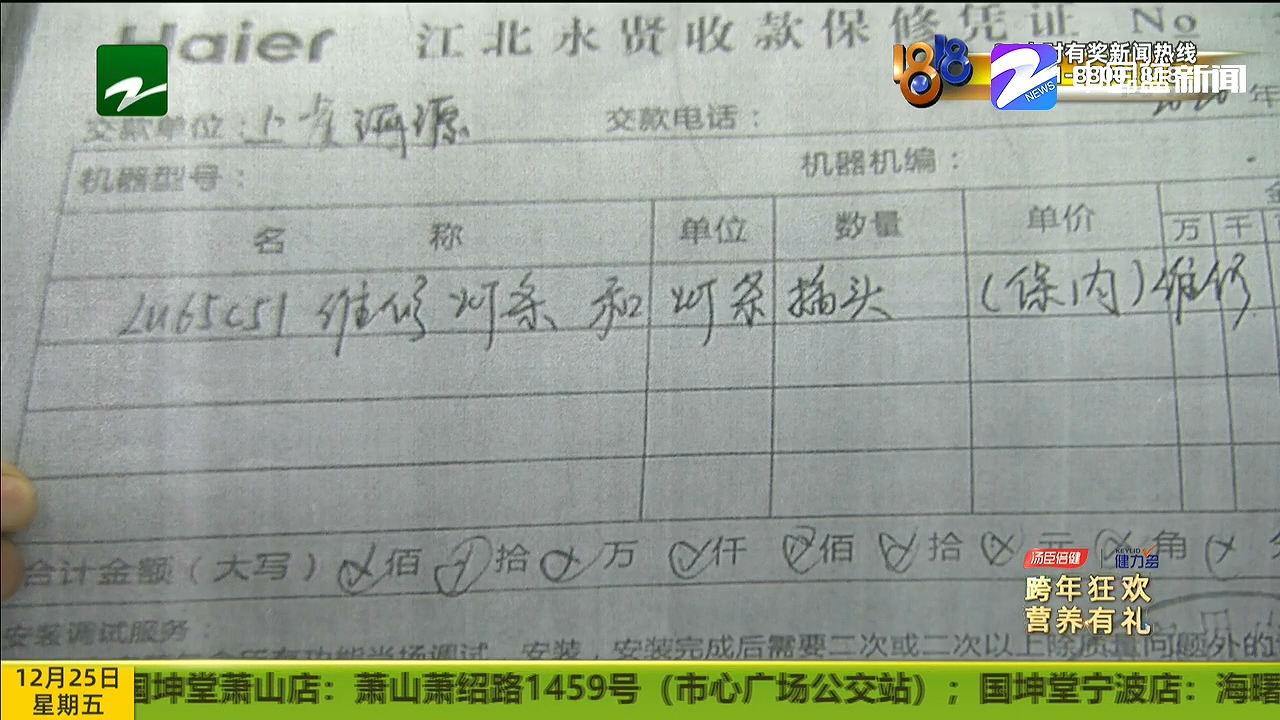 Haier 江北永贤收款保修凭证 No
1818
小时有奖新闻热线
新闻
NEWS
交款单位：
交款电话：
2020年
机器型号：
机器机编：
名 称 单位 数量 单价
万 千
LU65C51 维修 灯条 和 灯条 插头 (保内) 维修
合计金额（大写） 佰 拾 万 仟 佰 拾 元 角
汤臣倍健
健力多
跨年狂欢
营养有礼
安装调试服务：
安装，安装完成后需要二次或二次以上除质量问题外的
12月25日
星期五
国坤堂萧山店：萧山萧绍路1459号（市心广场公交站）；国坤堂宁波店：海曙